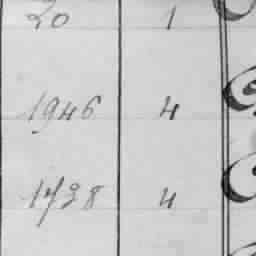 20 1
1946 4
1738 4